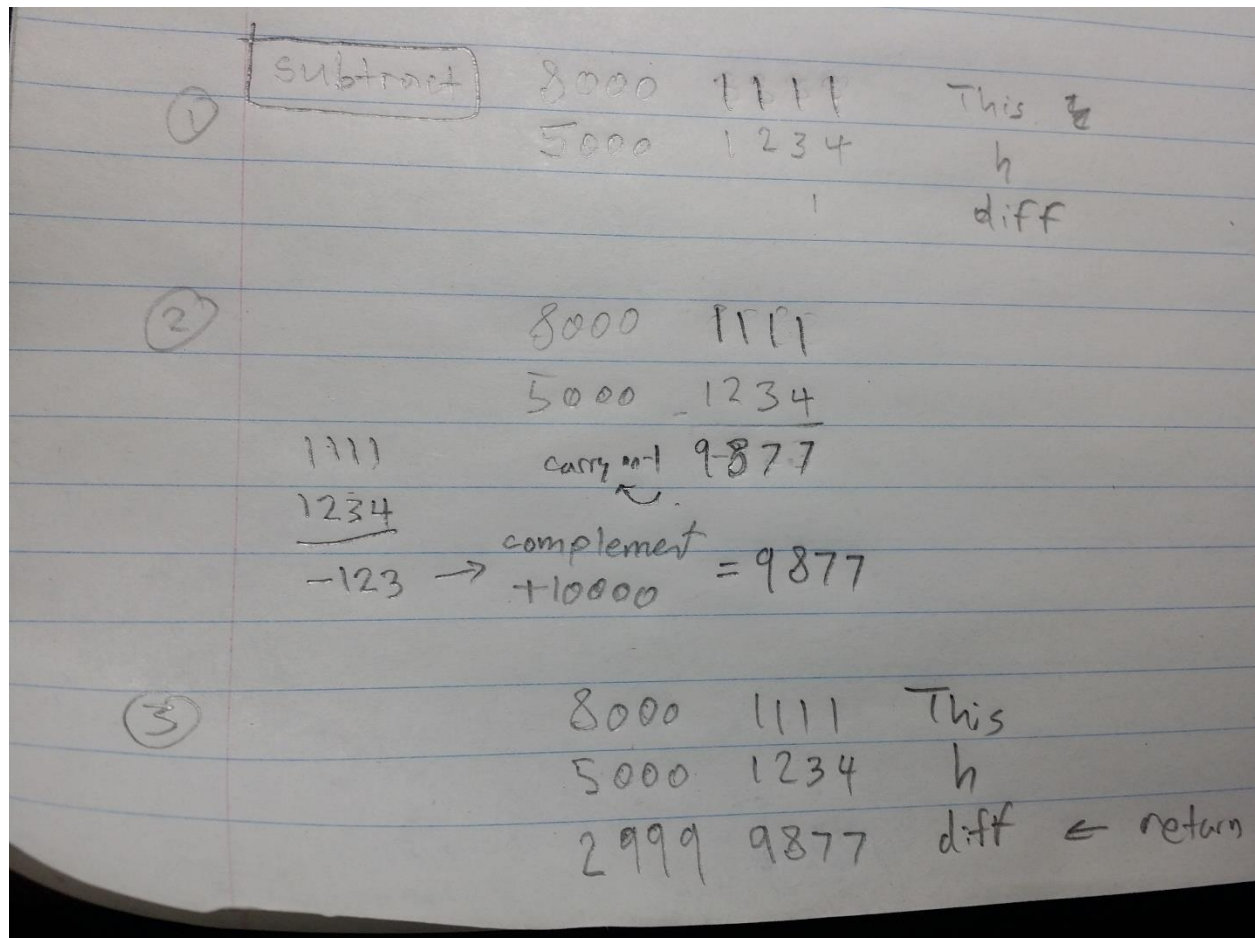 subtract 8000 1111 This
① 5000 1234 h
1 diff
② 8000 1111
5000 - 1234
1111 carry -1 9877
1234
-123 → complement +10000 = 9877
③ 8000 1111 This
5000 1234 h
2999 9877 diff ← return